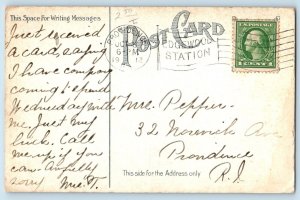 This Space For Writing Messages
POST CARD
EDGEWOOD
STATION
6 PM
Just received
a card, saying
I have company
coming to spend
Wednesday with
me Just my
luck. Call
me up if you
can. Awfully
sorry Mrs. T.
Mrs. Pepper.
32 Norwich Ave
Providence
R.I.
This side for the Address only
1 CENT 1